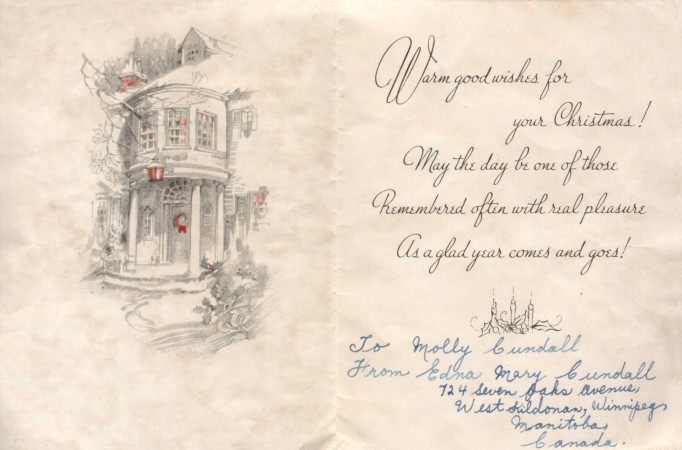 Warm good wishes for
your Christmas!
May the day be one of those
Remembered often with real pleasure
As a glad year comes and goes!
To Molly Cundall
From Edna Mary Cundall
724 Seven Oaks Avenue,
West Kildonan, Winnipeg,
Manitoba,
Canada.